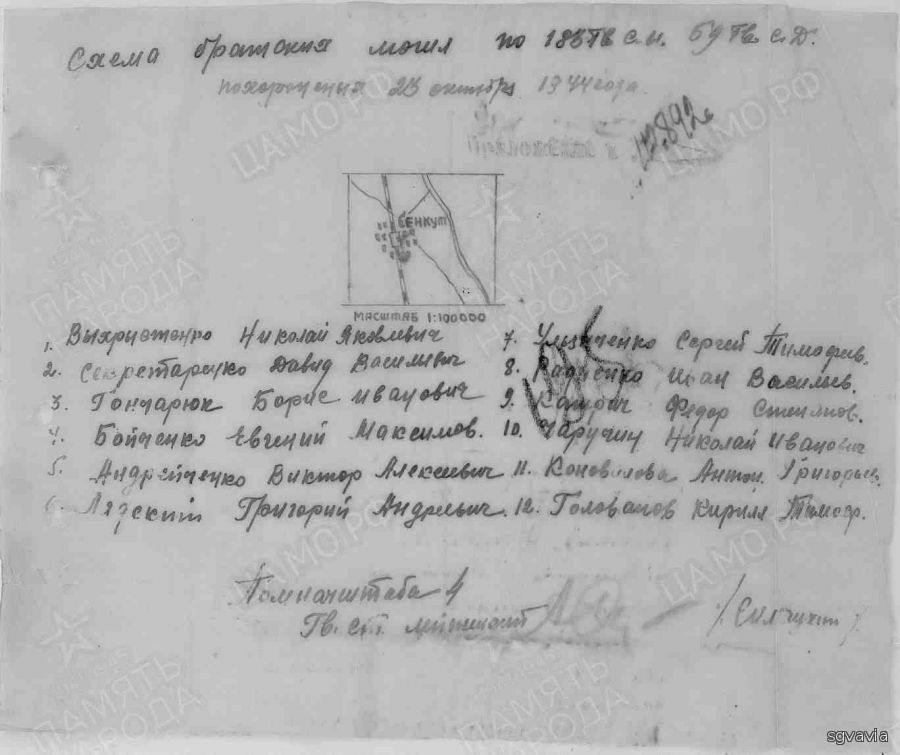 Схема братских могил по 183 Гв с.п. 59 Гв. с.Д.
похоронения 23 октября 1944 года.
12892с
СЕНКУТ
МАСШТАБ 1:100000
1. Выхристенко Николай Яковлевич
2. Секретаренко Давид Василиевич
3. Гончарюк Борис Иванович
4. Бойченко Евгений Максимов.
5. Андрейченко Виктор Алексеевич
6. Лядский Григорий Андреевич.
7. Сергей Тимофеев.
8. Иван Васильев.
9. Федор Степанов.
10. Чаручин Николай Иванович
11. Коновалова Антон. Григорьев.
12. Голованов Кирилл Тимоф.
Помначштаба 4
Гв. ст. лейтенант
ЦАМО РФ
ПАМЯТЬ НАРОДА
sgvavia